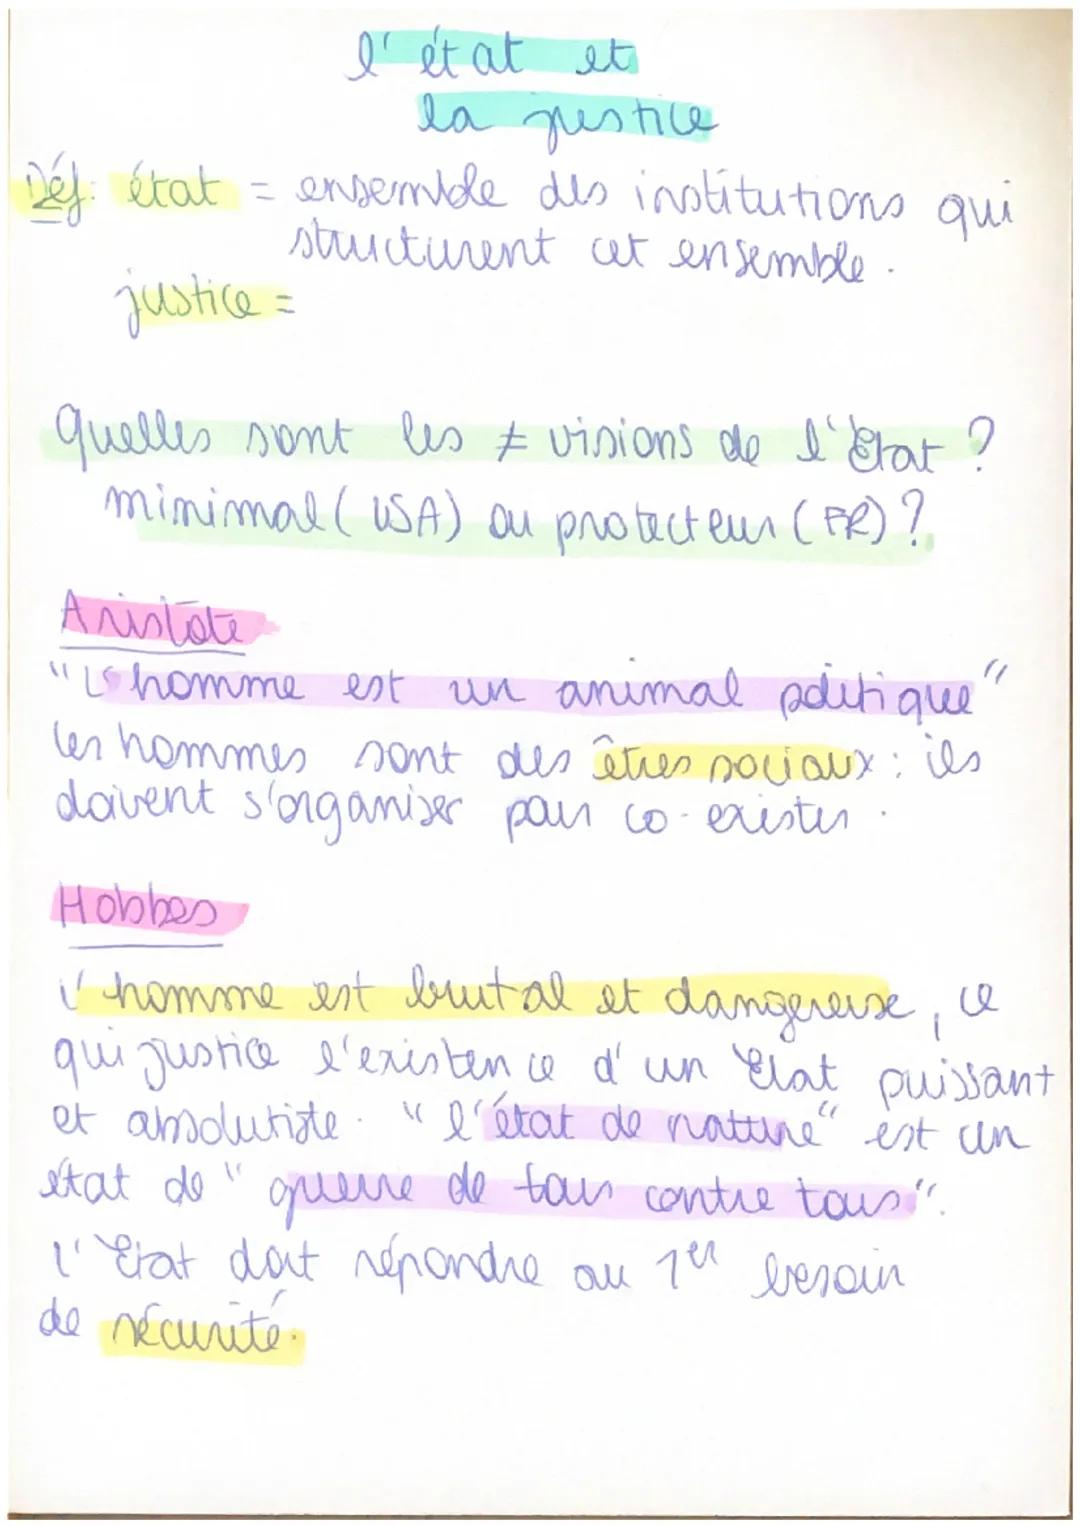 l'état et
la justice
Déf: état = ensemble des institutions qui
structurent cet ensemble.
justice =
Quelles sont les ≠ visions de l'Etat ?
minimal (USA) ou protecteur (FR) ?
Aristote
"L'homme est un animal politique"
les hommes sont des êtres sociaux : ils
doivent s'organiser pour co-exister.
Hobbes
l'homme est brutal et dangereuse, ce
qui justice l'existence d'un Etat puissant
et absolutiste. "l'état de nature" est un
état de "guerre de tous contre tous".
l'Etat doit répondre au 1er besoin
de sécurité.